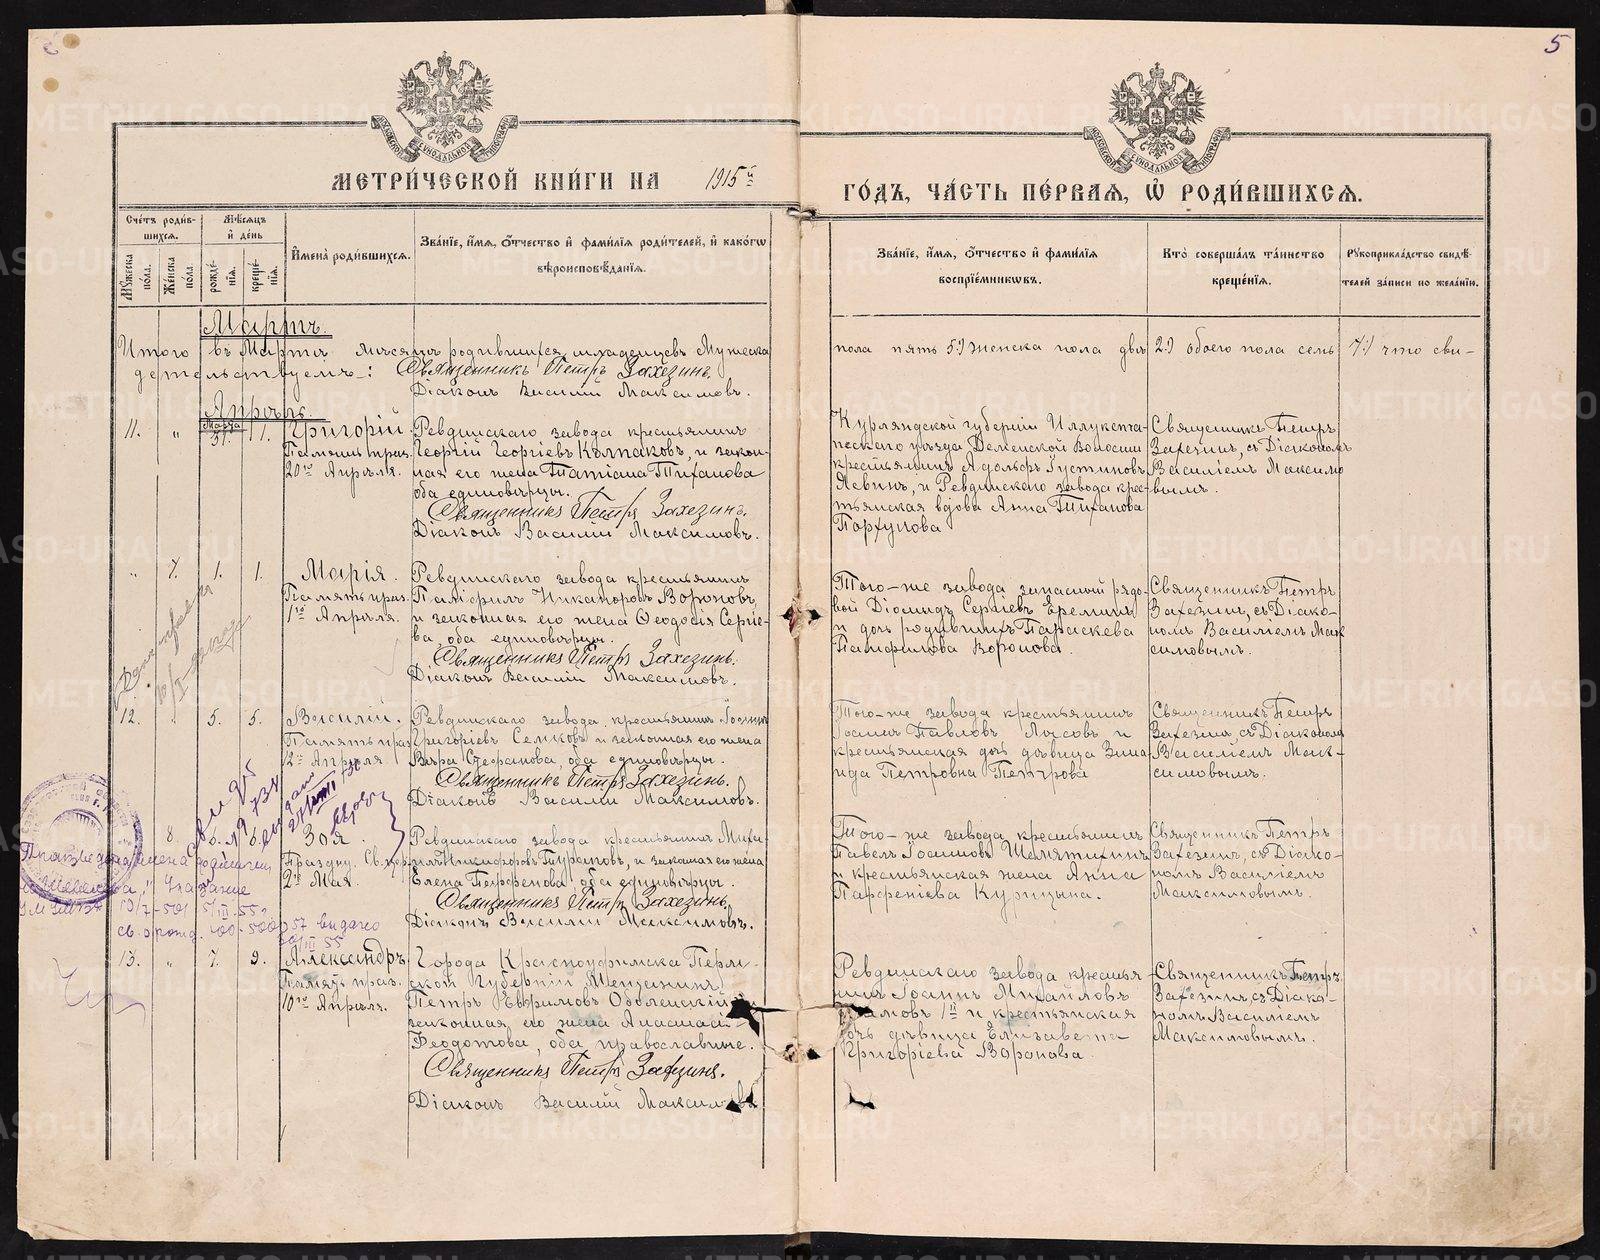 5
МЕТРИ́ЧЕСКОЙ КНИ́ГИ НА 1915й
ГО́ДЪ, ЧА́СТЬ ПЕ́РВАѦ, Ѡ҆ РОДИ́ВШИХСѦ.
Сче́тъ роди́в-
шихсѧ.
Мѣ́сѧцъ
и҆ де́нь
Мꙋ́жеска по́ла.
Же́нска по́ла.
рожде́-
нїѧ.
креще́-
нїѧ.
И҆мена̀ роди́вшихсѧ.
Зва́нїе, и҆́мѧ, ѻ҆́тчество и҆ фами́лїѧ роди́телей, и҆ како́гѡ
вѣроисповѣ́данїѧ.
Зва́нїе, и҆́мѧ, ѻ҆́тчество и҆ фами́лїѧ
воспрїе́мникѡвъ.
Кто̀ соверша́лъ та́инство
креще́нїѧ.
Рꙋкоприкла́дство свидѣ́-
телей за́писи по жела́нїю.
Мартъ.
Итого въ Мартѣ мѣсяцѣ родившихся младенцевъ Мужеска
пола пять 5.) женска пола двѣ 2.) обоего пола семь 7.) что сви-
детельствуемъ: Священникъ Петръ Захезинъ.
Діаконъ Василій Максимовъ.
Апрѣль.
11. " Марта 31. 1. Григорій.
Память праз.
20го Апрѣля.
Ревдинскаго завода крестьянинъ
Георгій Георгіевъ Колпаковъ, и закон-
ная его жена Татіана Тиханова
оба единовѣрцы.
Священникъ Петръ Захезинъ.
Діаконъ Василій Максимовъ.
Курляндской губерніи Иллукста-
нскаго уѣзда Деменской Волости
крестьянинъ Адольфъ Густиновъ
Левинъ, и Ревдинскаго завода крес-
тьянская вдова Анна Тиханова
Порхунова
Священникъ Петръ
Захезинъ, съ Діакономъ
Василіемъ Максимо
вымъ.
" 7. 1. 1. Марія.
Память праз.
1го Апрѣля.
Ревдинскаго завода крестьянинъ
Памфилъ Никаноровъ Вороновъ,
и законная его жена Ѳеодосія Сергіе-
ва, оба единовѣрцы.
Священникъ Петръ Захезинъ.
Діаконъ Василій Максимовъ.
Того-же завода запасный рядо-
вой Діомидъ Сергіевъ Ереминъ
и дочь родившихъ Параскева
Памфилова Воронова.
Священникъ Петръ
Захезинъ, съ Діако-
номъ Василіемъ Мак
симовымъ.
12. " 5. 5. Василій.
Память праз.
12го Апрѣля
Ревдинскаго завода, крестьянинъ Іоаннъ
Григоріевъ Семковъ и законная его жена
Вѣра Стефанова, оба единовѣрцы.
Священникъ Петръ Захезинъ.
Діаконъ Василій Максимовъ.
Того-же завода крестьянинъ
Іоаннъ Павловъ Лосовъ и
крестьянская дочь дѣвица Зина
ида Петровна Петрова
Священникъ Петръ
Захезинъ, съ Діакономъ
Василіемъ Мак-
симовымъ.
8. 6. 6. Зоя.
2го Мая.
Ревдинскаго завода крестьянинъ Миха
илъ Никифоровъ Турановъ, и законная его жена
Елена Парфенова, оба единовѣрцы.
Священникъ Петръ Захезинъ.
Діаконъ Василій Максимовъ.
Того-же завода, крестьянинъ
Павелъ Іоанновъ Шемятихинъ
и крестьянская жена Анна
Парфеніева Курицына.
Священникъ Петръ
Захезинъ, съ Діако-
номъ Василіемъ
Максимовымъ.
13. " 7. 9. Александръ
Память праз.
10го Апрѣля.
Города Красноуфимска Перм-
ской Губерніи Мещанинъ
Петръ Ефримовъ Оболенскій и
законная его жена Анастасі-
Ѳеодотова, оба православные.
Священникъ Петръ Захезинъ.
Діаконъ Василій Максимовъ
Ревдинскаго завода крестья-
нинъ Іоаннъ Михайловъ
1й и крестьянская
дочь дѣвица Елизавета
Григоріева Воронова.
Священникъ Петръ
Захезинъ, съ Діако-
номъ Василіемъ
Максимовымъ.